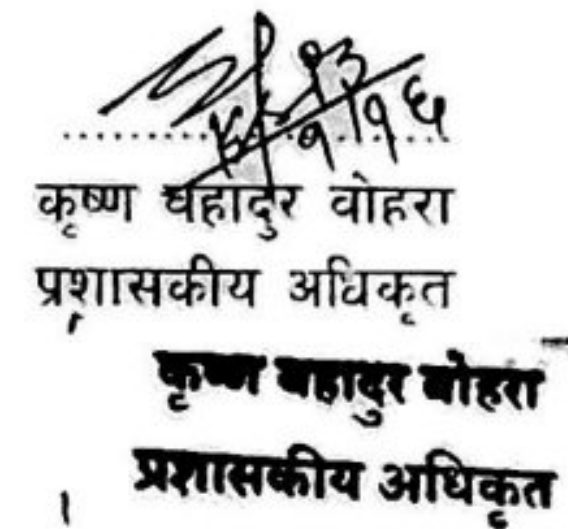 कृष्ण बहादुर वोहरा
प्रशासकीय अधिकृत
कृष्ण बहादुर बोहरा
प्रशासकीय अधिकृत